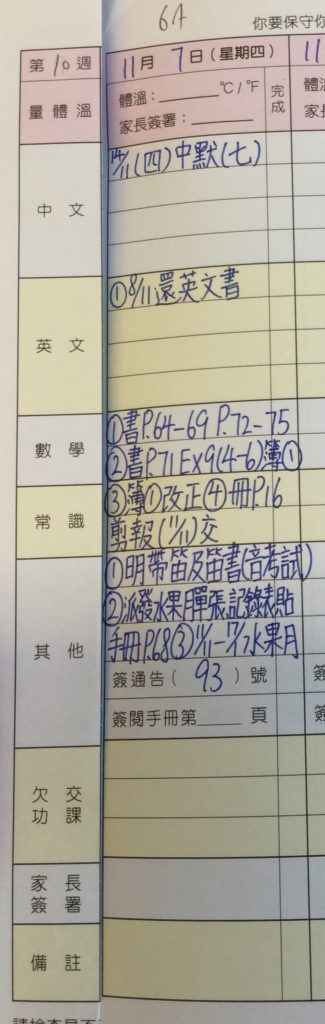 6A
你要保守你
第10週
11月7日(星期四)
11
量體溫
體溫：______ °C/°F
家長簽署：______
完成
中文
14/11(四)中默(七)
英文
①8/11還英文書
數學
①書P.64-69 P.72-75
②書P.71 Ex9(4-6)簿①
常識
③簿①改正④冊P.16
剪報(11/11)交
其他
①明帶笛及笛書(音考試)
②派發水果月單張,記錄表貼
手冊P.68③11/11-17/12水果月
簽通告(93)號
簽閱手冊第____頁
欠交功課
家長簽署
備註